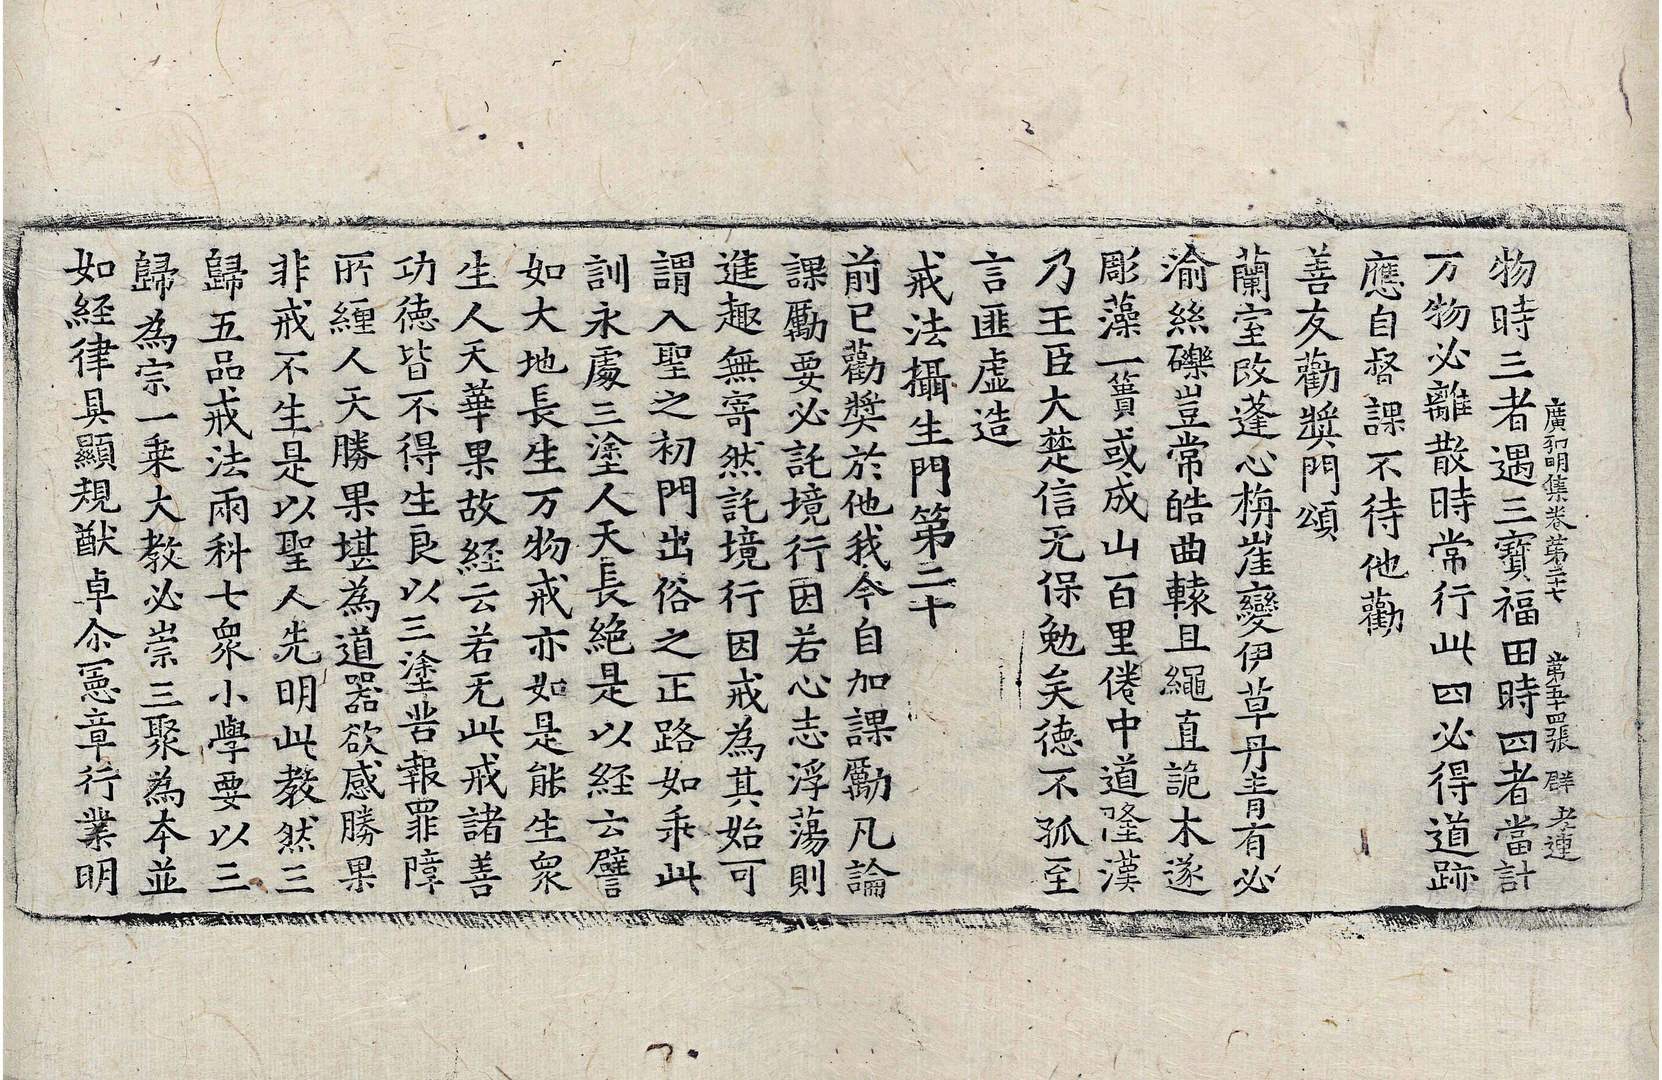 廣弘明集卷第二十七 第五十四張 群 孝連
物時三者遇三寶福田時四者當計
万物必離散時常行此四必得道跡
應自督課不待他勸
善友勸奬門頌
蘭室改蓬心栴崖變伊草丹青有必
渝絲礫豈常皓曲轅且繩直詭木遂
彫藻一簣或成山百里倦中道隆漢
乃王臣大楚信无保勉矣德不孤至
言匪虛造
戒法攝生門第二十
前已勸奬於他我今自加課勵凡論
課勵要必託境行因若心志浮蕩則
進趣無寄然託境行因戒為其始可
謂入聖之初門出俗之正路如乖此
訓永處三塗人天長絶是以経云譬
如大地長生万物戒亦如是能生衆
生人天華果故経云若无此戒諸善
功德皆不得生良以三塗苦報罪障
所纒人天勝果堪為道器欲感勝果
非戒不生是以聖人先明此教然三
歸五品戒法兩科七衆小學要以三
歸為宗一乗大教必崇三聚為本並
如経律具顯規猷卓尒憲章行業明